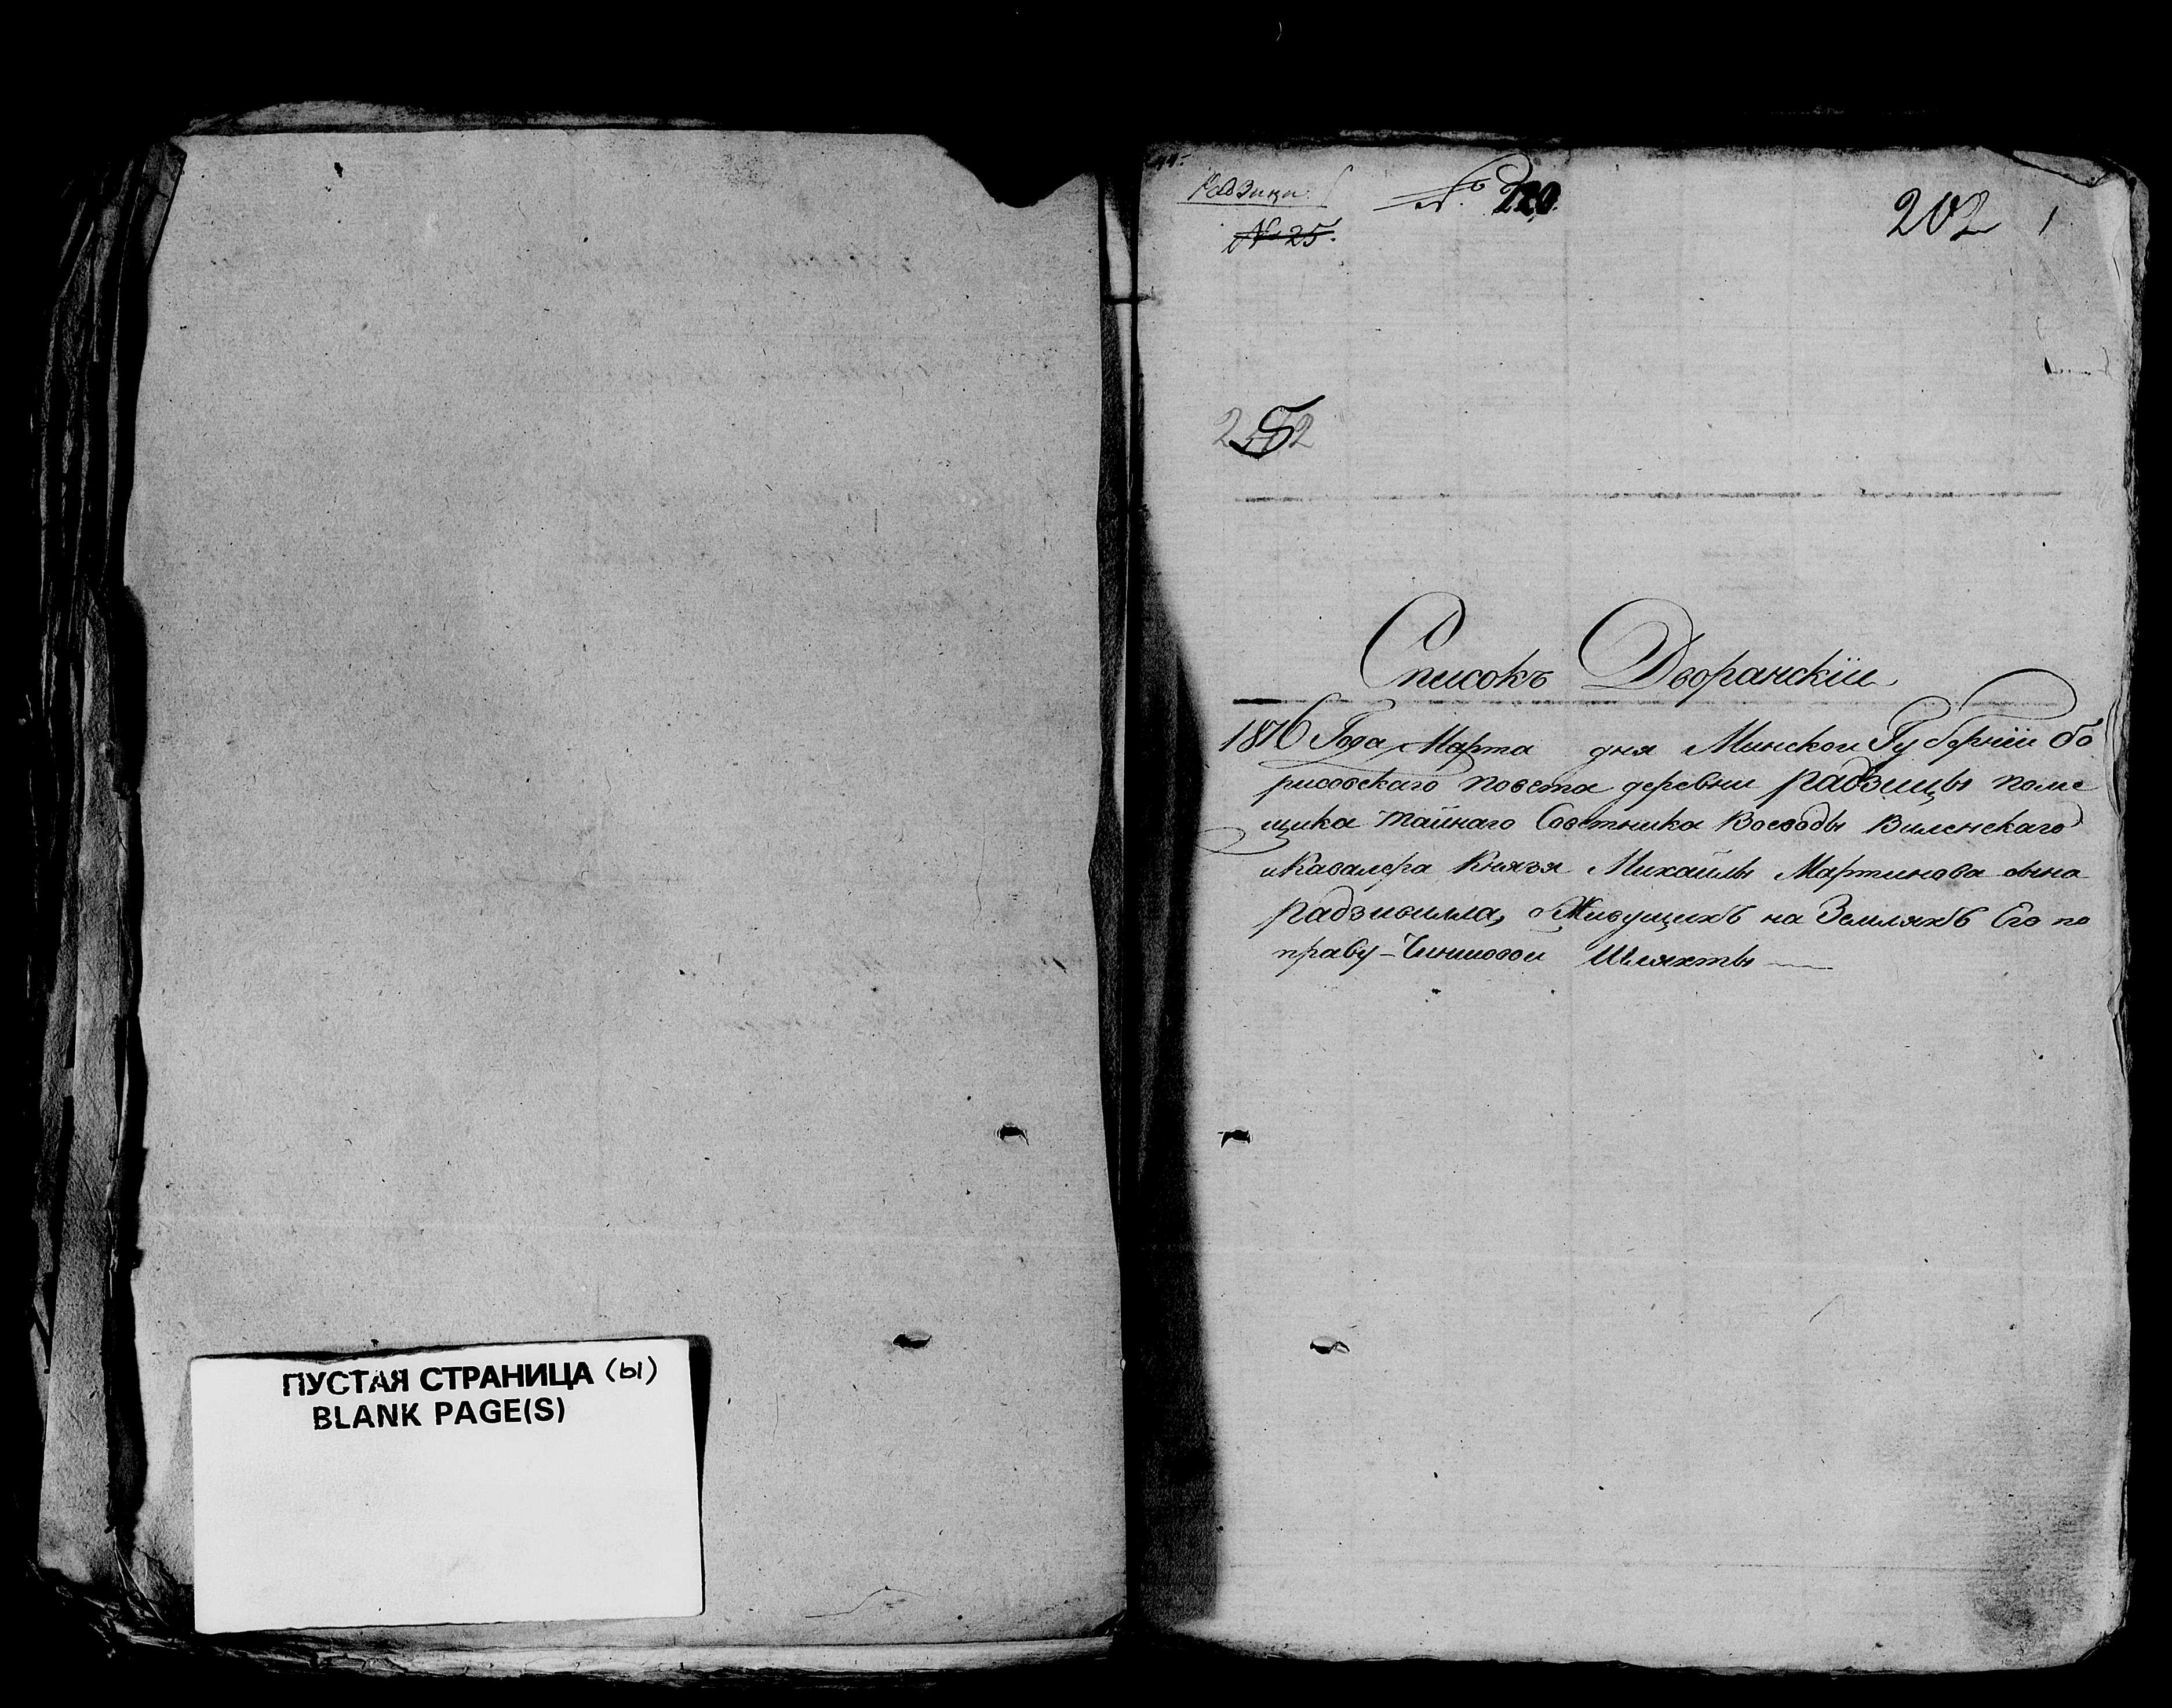 ПУСТАЯ СТРАНИЦА (ы)
BLANK PAGE(S)
Радзицы.
№ 220.
202
1
№ 25.
Списокъ Дворанскіи
1816 Года Марта дня Минскои Губерніи бо
рисовскаго повета деревни радзицы поме
щика тайнаго Советника Воеводы Виленскаго
и Кавалера Князя Михайлы Мартинова сына
радзивилла, о Живущихъ на Земляхъ Его по
праву - Чиншовои Шляхты —